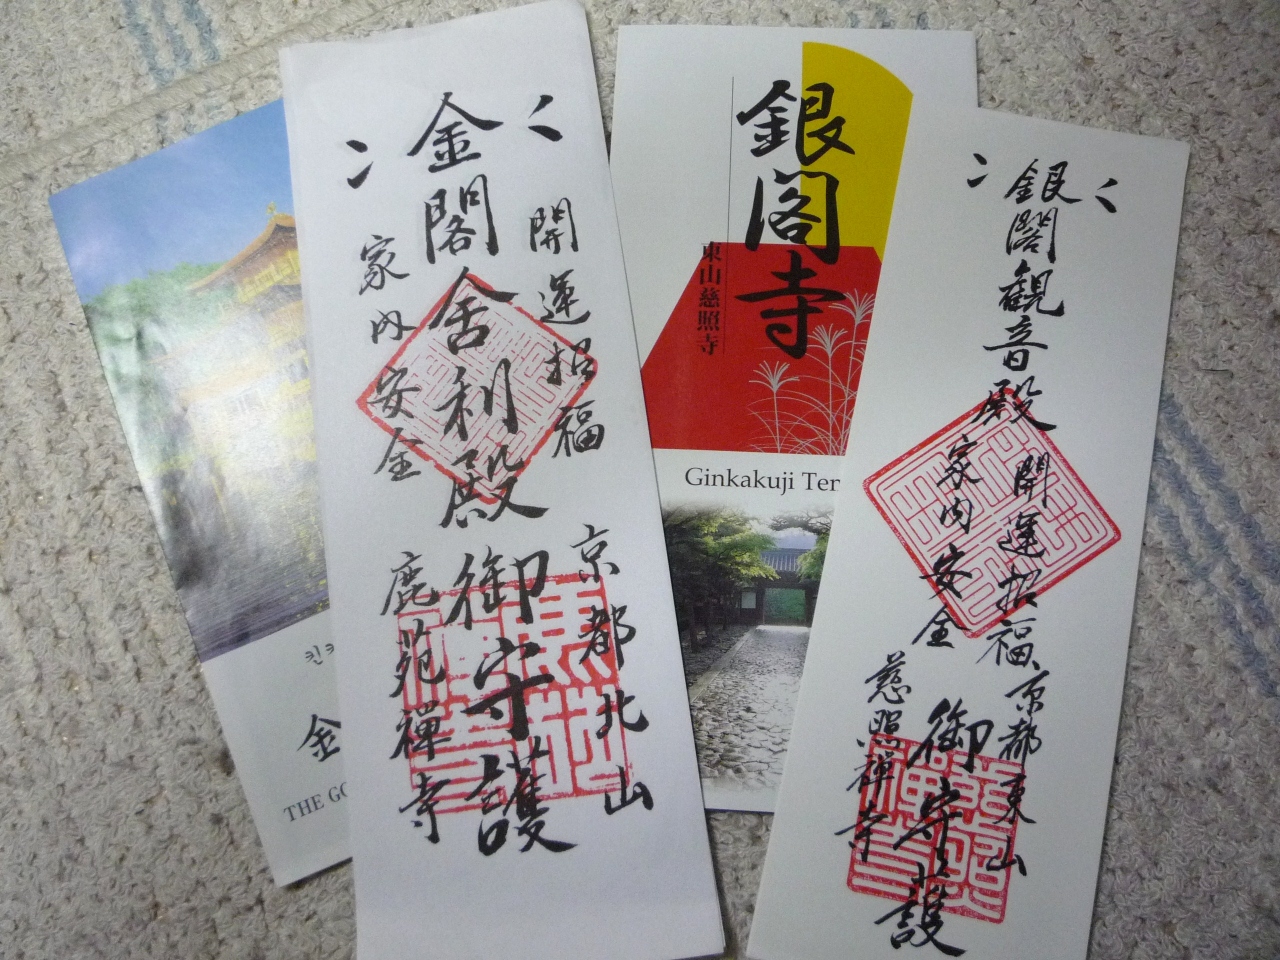 金閣舎利殿 御守護
開運招福
家内安全
京都北山
鹿苑禅寺
銀閣寺
東山慈照寺
Ginkakuji Ter
銀閣観音殿 御守護
開運招福
家内安全
京都東山
慈照禅寺
킨
金
THE GO